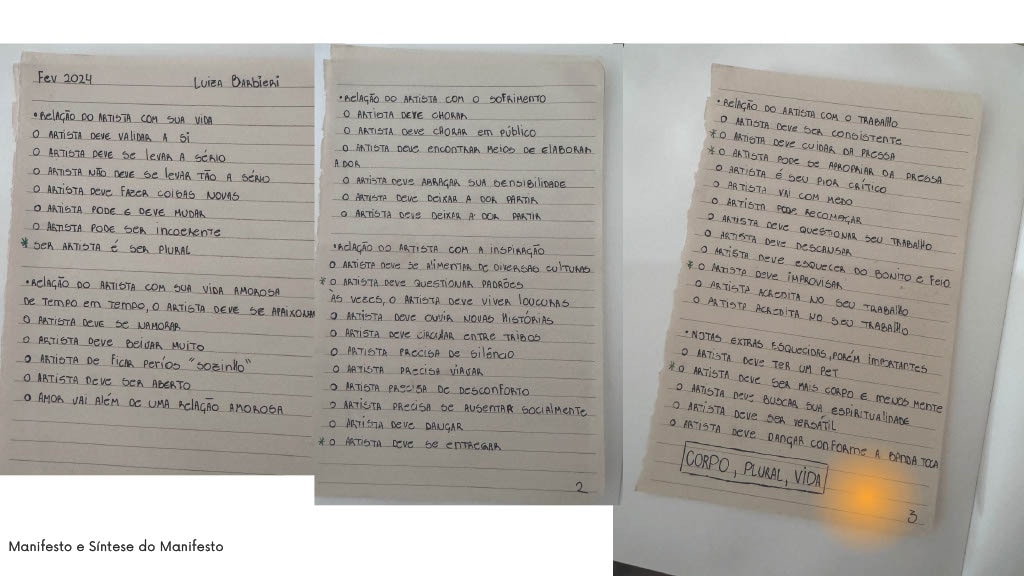 Fev 2024 Luiza Barbieri
• RELAÇÃO DO ARTISTA COM SUA VIDA
O ARTISTA DEVE VALIDAR A SI
O ARTISTA DEVE SE LEVAR A SÉRIO
O ARTISTA NÃO DEVE SE LEVAR TÃO A SÉRIO
O ARTISTA DEVE FAZER COISAS NOVAS
O ARTISTA PODE E DEVE MUDAR
O ARTISTA PODE SER INCOERENTE
* SER ARTISTA É SER PLURAL
• RELAÇÃO DO ARTISTA COM SUA VIDA AMOROSA
DE TEMPO EM TEMPO, O ARTISTA DEVE SE APAIXONAR
O ARTISTA DEVE SE NAMORAR
O ARTISTA DEVE BEIJAR MUITO
O ARTISTA DE FICAR PERÍOS "SOZINHO"
O ARTISTA DEVE SER ABERTO
O AMOR VAI ALÉM DE UMA RELAÇÃO AMOROSA
• RELAÇÃO DO ARTISTA COM O SOFRIMENTO
O ARTISTA DEVE CHORAR
O ARTISTA DEVE CHORAR EM PÚBLICO
O ARTISTA DEVE ENCONTRAR MEIOS DE ELABORAR
A DOR
O ARTISTA DEVE ABRAÇAR SUA SENSIBILIDADE
O ARTISTA DEVE DEIXAR A DOR PARTIR
O ARTISTA DEVE DEIXAR A DOR PARTIR
• RELAÇÃO DO ARTISTA COM A INSPIRAÇÃO
O ARTISTA DEVE SE ALIMENTAR DE DIVERSAS CULTURAS
* O ARTISTA DEVE QUESTIONAR PADRÕES
ÀS VEZES, O ARTISTA DEVE VIVER LOUCURAS
O ARTISTA DEVE OUVIR NOVAS HISTÓRIAS
O ARTISTA DEVE CIRCULAR ENTRE TRIBOS
O ARTISTA PRECISA DE SILÊNCIO
O ARTISTA PRECISA VIAJAR
O ARTISTA PRECISA DE DESCONFORTO
O ARTISTA PRECISA SE AUSENTAR SOCIALMENTE
O ARTISTA DEVE DANÇAR
* O ARTISTA DEVE SE ENTREGAR
2
• RELAÇÃO DO ARTISTA COM O TRABALHO
O ARTISTA DEVE SER CONSISTENTE
* O ARTISTA DEVE CUIDAR DA PRESSA
* O ARTISTA PODE SE APROPRIAR DA PRESSA
O ARTISTA É SEU PIOR CRÍTICO
O ARTISTA VAI COM MEDO
O ARTISTA PODE RECOMEÇAR
O ARTISTA DEVE QUESTIONAR SEU TRABALHO
O ARTISTA DEVE DESCANSAR
O ARTISTA DEVE ESQUECER DO BONITO E FEIO
* O ARTISTA DEVE IMPROVISAR
O ARTISTA ACREDITA NO SEU TRABALHO
O ARTISTA ACREDITA NO SEU TRABALHO
• NOTAS EXTRAS ESQUECIDAS, PORÉM IMPORTANTES
O ARTISTA DEVE TER UM PET
* O ARTISTA DEVE SER MAIS CORPO E MENOS MENTE
O ARTISTA DEVE BUSCAR SUA ESPIRITUALIDADE
O ARTISTA DEVE SER VERSÁTIL
O ARTISTA DEVE DANÇAR CONFORME A BANDA TOCA
CORPO, PLURAL, VIDA
3
Manifesto e Síntese do Manifesto